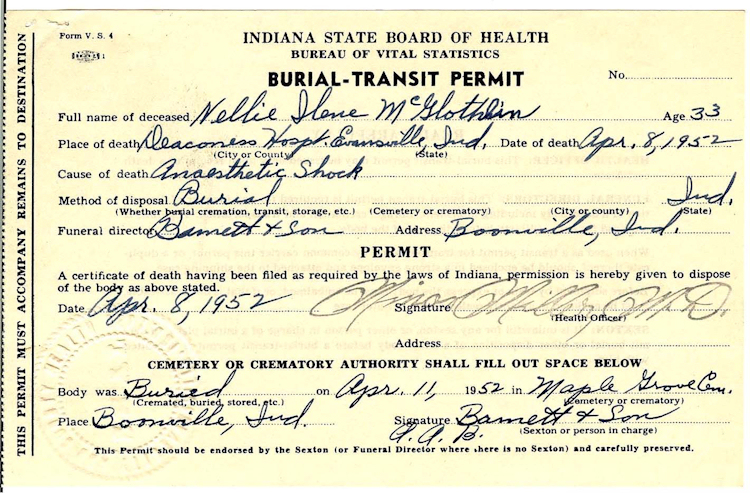 Form V. S. 4
INDIANA STATE BOARD OF HEALTH
BUREAU OF VITAL STATISTICS
BURIAL-TRANSIT PERMIT
No.
Full name of deceased Nellie Ilene McGlothlin Age 33
Place of death Deaconess Hospt. Evansville, Ind. Date of death Apr. 8, 1952
(City or County) (State)
Cause of death Anaesthetic Shock
Method of disposal Burial Ind.
(Whether burial cremation, transit, storage, etc.) (Cemetery or crematory) (City or county) (State)
Funeral director Barnett & Son Address Boonville, Ind.
PERMIT
A certificate of death having been filed as required by the laws of Indiana, permission is hereby given to dispose
of the body as above stated.
Date Apr. 8, 1952 Signature Minor Miller M.D.
(Health Officer)
Address
CEMETERY OR CREMATORY AUTHORITY SHALL FILL OUT SPACE BELOW
Body was Buried on Apr. 11, 1952 in Maple Grove Cem.
(Cremated, buried, stored, etc.) (Cemetery or crematory)
Place Boonville, Ind. Signature Barnett & Son
A. A. B. (Sexton or person in charge)
This Permit should be endorsed by the Sexton (or Funeral Director where there is no Sexton) and carefully preserved.
THIS PERMIT MUST ACCOMPANY REMAINS TO DESTINATION